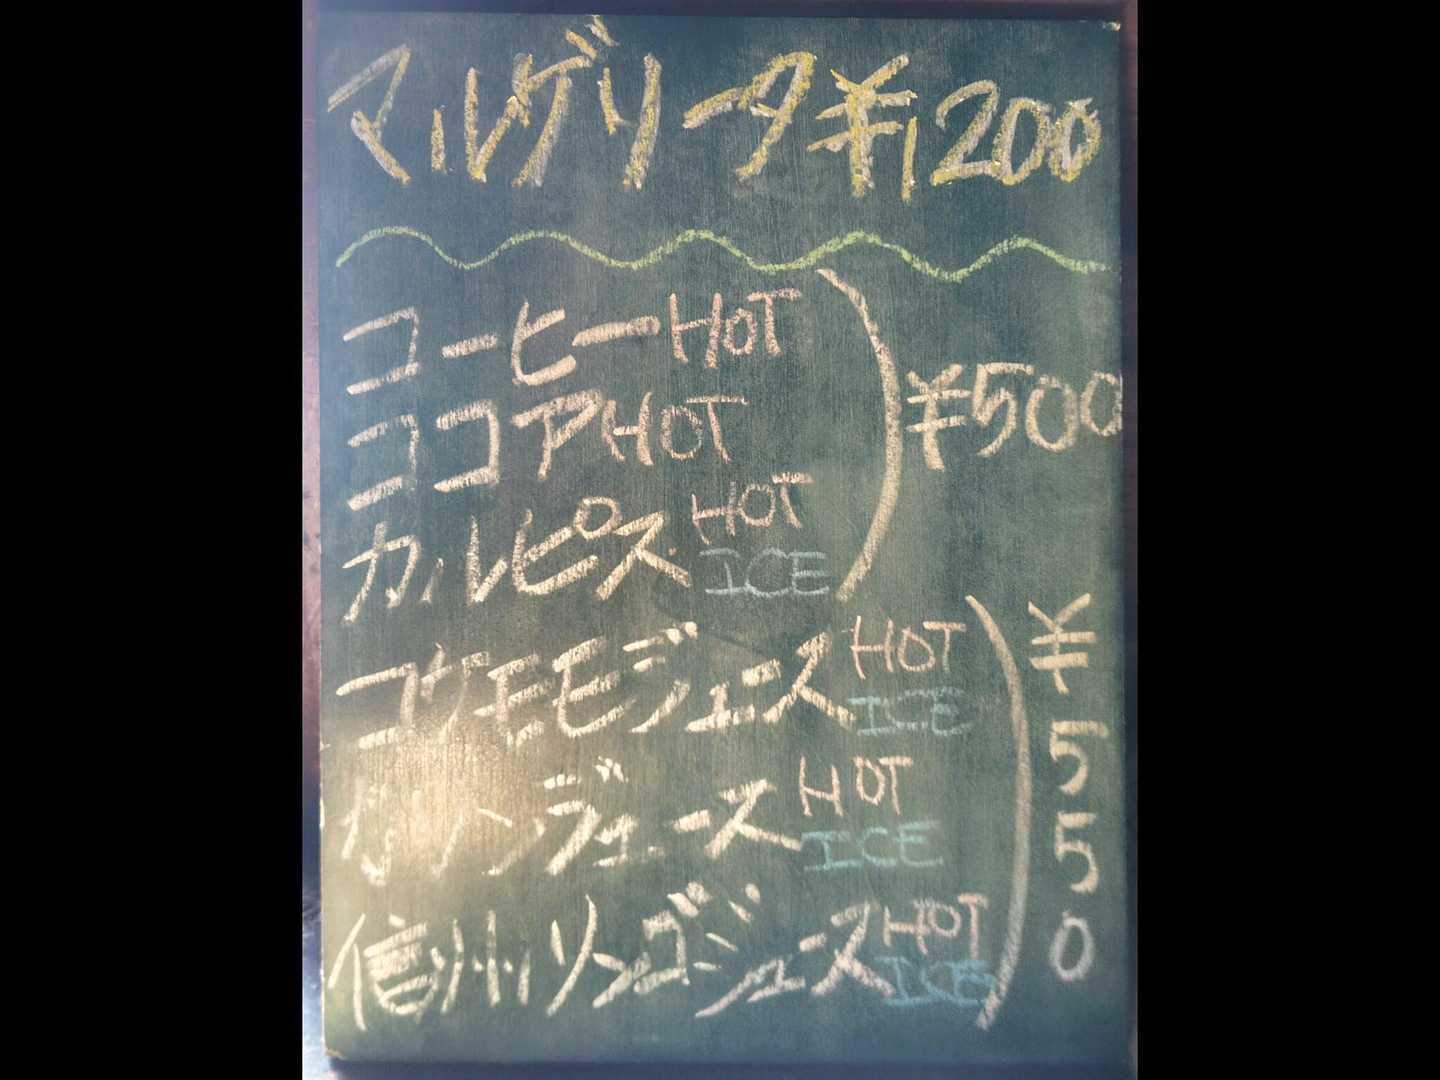 マルゲリータ ¥1200
コーヒー HOT
ココア HOT
¥500
カルピス HOT
ICE
コウモモジュース HOT
ICE
¥550
ジュース HOT
ICE
信州リンゴジュース HOT
ICE